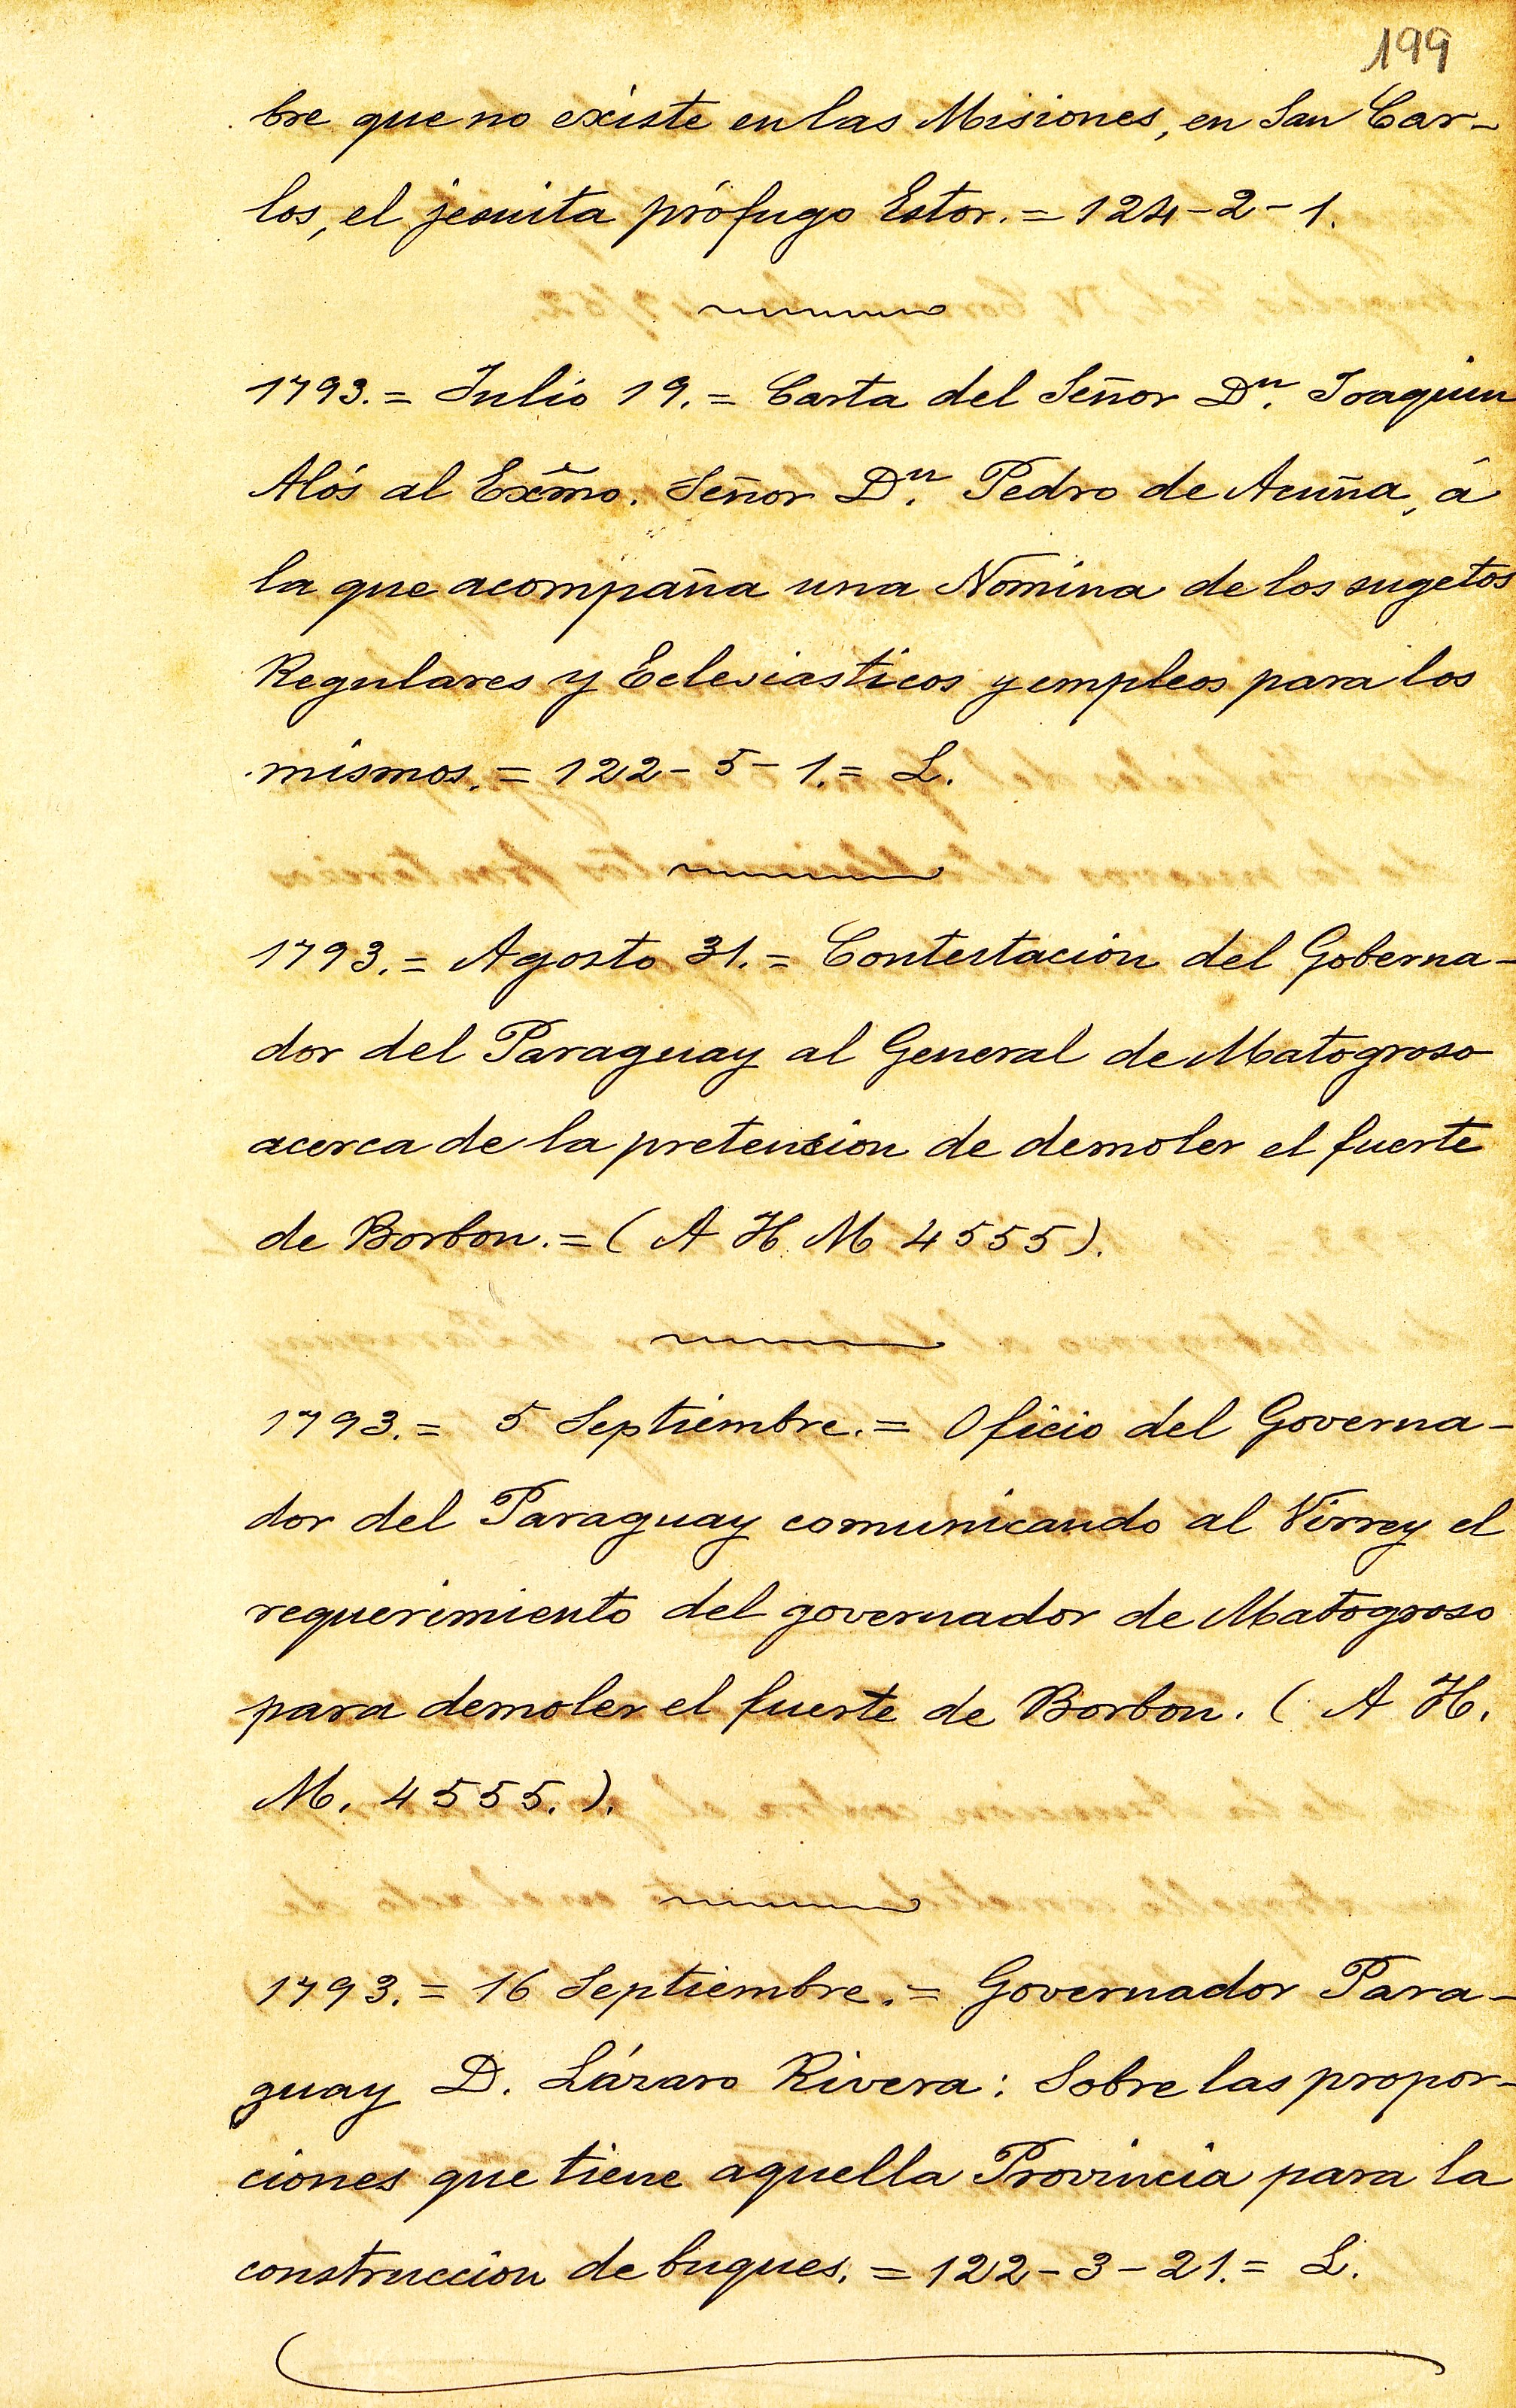 199
bre que no existe en las Misiones, en San Car-
los, el jesuita prófugo Estor. = 124-2-1.
1793. = Julio 19. = Carta del Señor Dn. Joaquin
Alós al Exmo. Señor Dn. Pedro de Acuña, á
la que acompaña una Nomina de los sugetos
Regulares y Eclesiasticos y empleos para los
mismos. = 122-5-1. = L.
1793. = Agosto 31. = Contestacion del Goberna-
dor del Paraguay al General de Matogroso
acerca de la pretension de demoler el fuerte
de Borbon. = (A H M 4555).
1793. = 5 Septiembre. = Oficio del Governa-
dor del Paraguay comunicando al Virrey el
requerimiento del governador de Matogroso
para demoler el fuerte de Borbon. (A H.
M. 4555.).
1793. = 16 Septiembre. = Governador Para-
guay D. Lázaro Rivera: Sobre las propor-
ciones que tiene aquella Provincia para la
construccion de buques. = 122-3-21. = L.